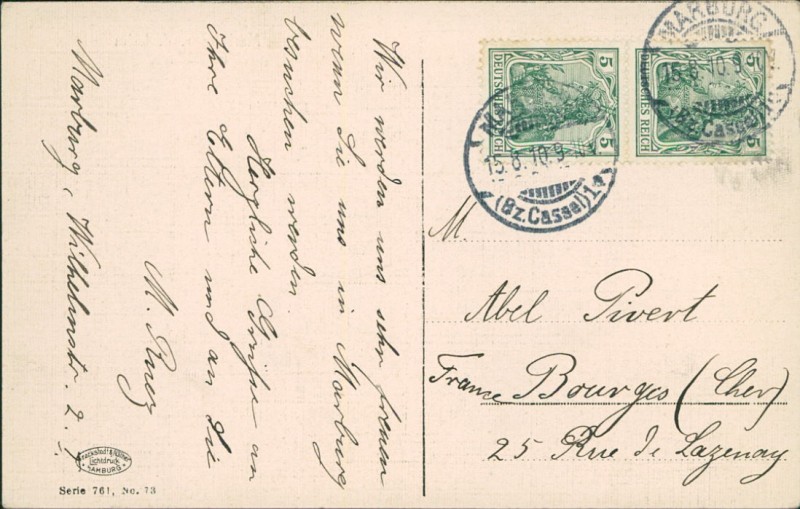 Wir werden uns sehr freuen
wenn Sie uns in Marburg
besuchen werden.
Herzliche Grüße an
Ihre Eltern und an Sie
M.
Marburg, Wilhelmstr. 2.
5
DEUTSCHES REICH
5
5
DEUTSCHES REICH
5
MARBURG
15.8.10.9
(Bz.Cassel)1
15.8.10.9
(Bz.Cassel)1
M.
Abel Pivert
France Bourges (Cher)
25 Rue de Lazenay
Knackstedt & Näther
Lichtdruck
HAMBURG
Serie 761, No. 73